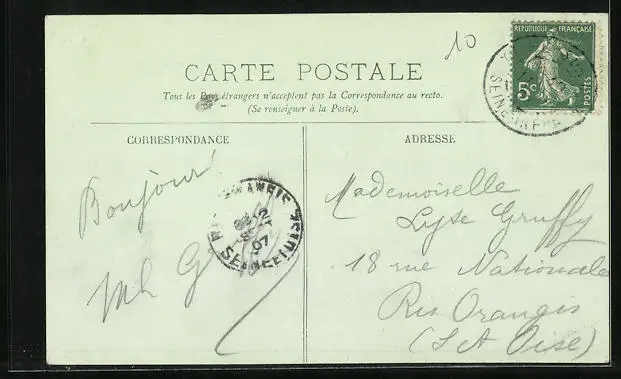 10
REPUBLIQUE FRANÇAISE
5c
POSTES
CARTE POSTALE
Tous les Pays étrangers n'acceptent pas la Correspondance au recto.
(Se renseigner à la Poste).
CORRESPONDANCE
ADRESSE
Bonjour!
Mademoiselle
Lyse Gruffy
18 rue Nationale
Ris Orangis
(S et Oise)
SEINE
07
SEINE ET OISE